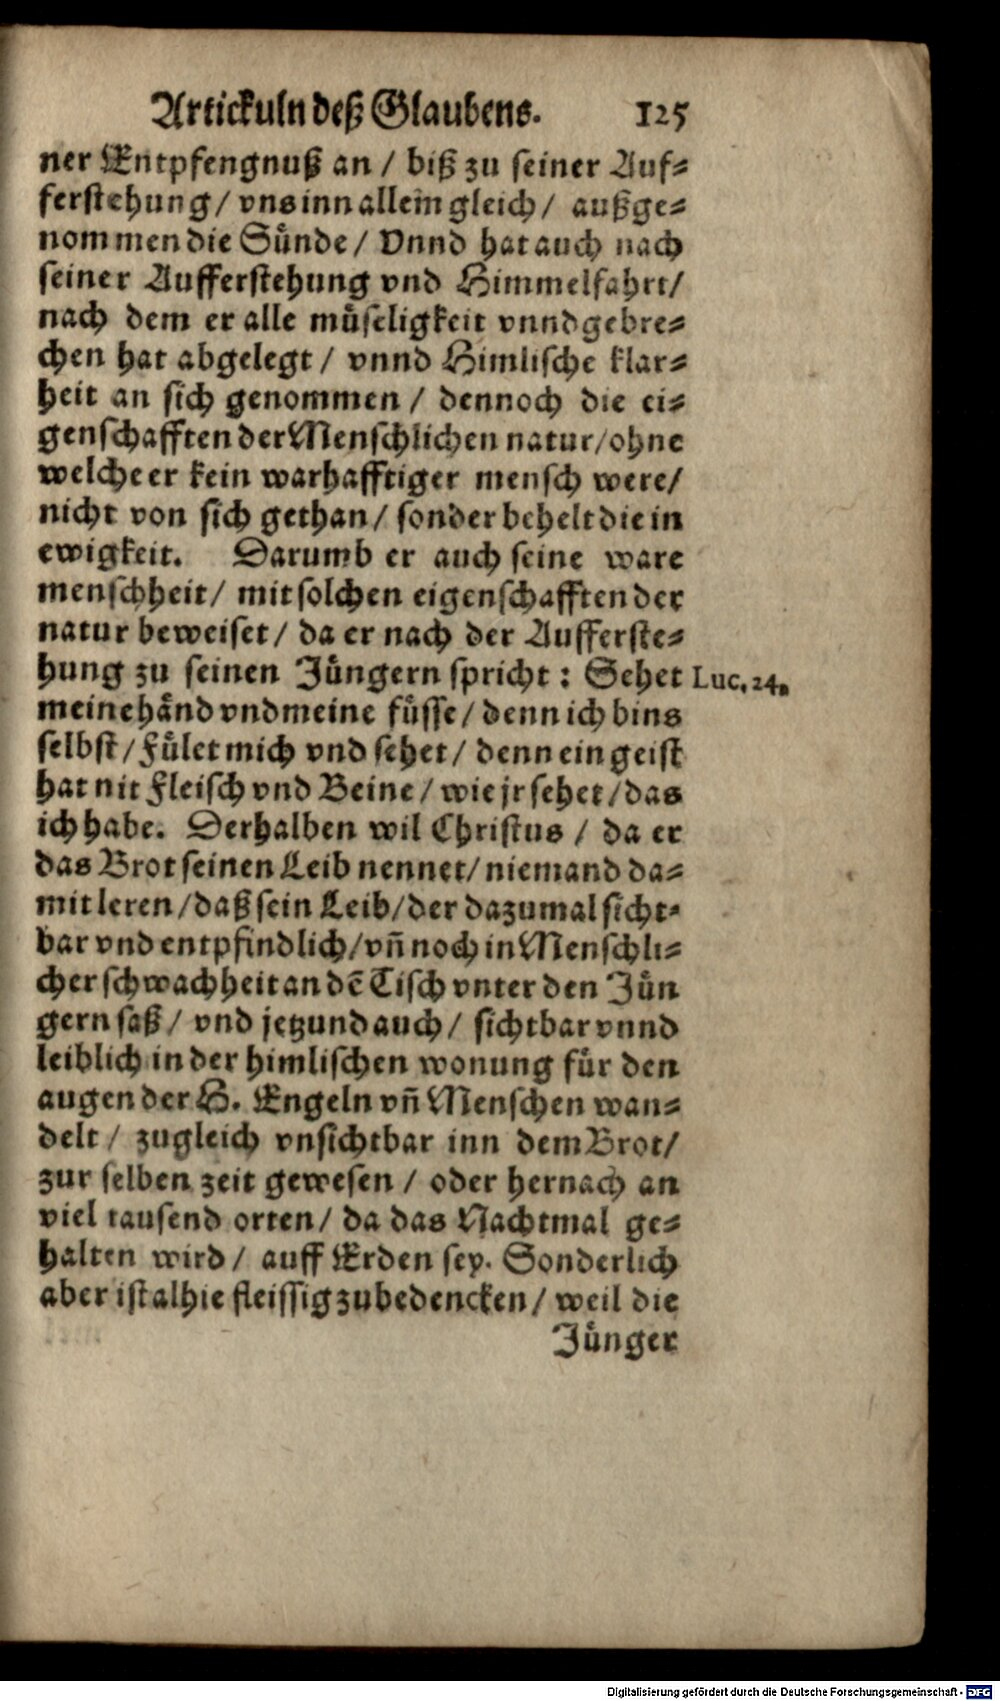 Artickuln deß Glaubens. 125
ner Entpfengnuß an / biß zu seiner Auf-
ferstehung / vns inn allem gleich / außge-
nommen die Sünde / Vnnd hat auch nach
seiner Aufferstehung vnd Himmelfahrt /
nach dem er alle müseligkeit vnnd gebre-
chen hat abgelegt / vnnd Himlische klar-
heit an sich genommen / dennoch die ei-
genschafften der Menschlichen natur / ohne
welche er kein warhafftiger mensch were /
nicht von sich gethan / sonder behelt die in
ewigkeit. Darumb er auch seine ware
menschheit / mit solchen eigenschafften der
natur beweiset / da er nach der Aufferste-
hung zu seinen Jüngern spricht : Sehet Luc. 24.
meine händ vnd meine füsse / denn ich bins
selbst / Fület mich vnd sehet / denn ein geist
hat nit Fleisch vnd Beine / wie jr sehet / das
ich habe. Derhalben wil Christus / da er
das Brot seinen Leib nennet / niemand da-
mit leren / daß sein Leib / der dazumal sicht-
bar vnd entpfindlich / vñ noch in Menschli-
cher schwachheit an dẽ Tisch vnter den Jün
gern saß / vnd jetzund auch / sichtbar vnnd
leiblich in der himlischen wonung für den
augen der H. Engeln vñ Menschen wan-
delt / zugleich vnsichtbar inn dem Brot /
zur selben zeit gewesen / oder hernach an
viel tausend orten / da das Nachtmal ge-
halten wird / auff Erden sey. Sonderlich
aber ist alhie fleissig zubedencken / weil die
Jünger
Digitalisierung gefördert durch die Deutsche Forschungsgemeinschaft - DFG